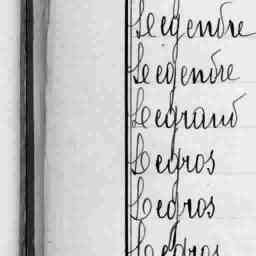 Legendre
Legendre
Legrand
Legros
Legros
Legros